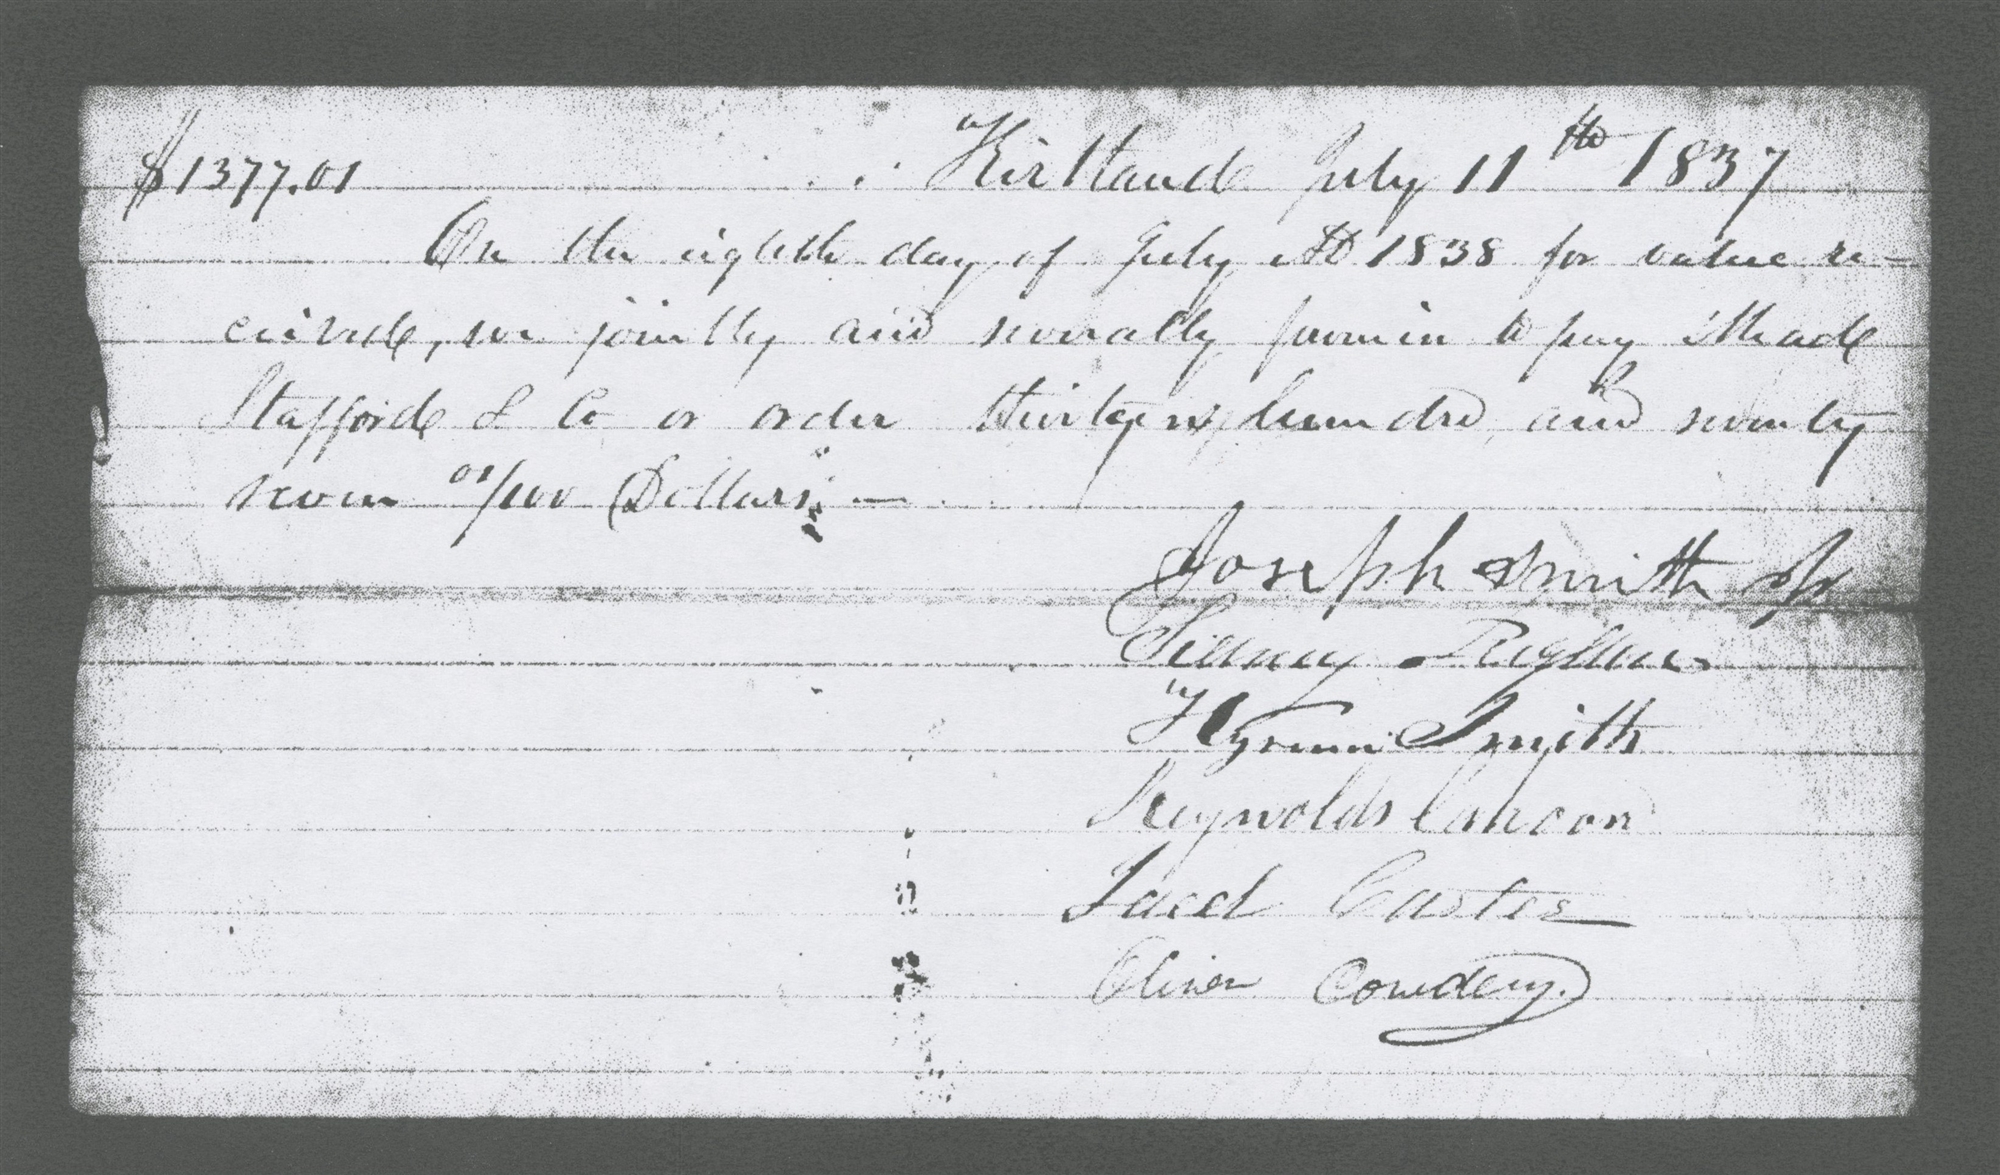 $1377.01 Kirtland July 11th 1837
On the eighth day of July AD 1838 for value re-
cieved, we jointly and severally promis to pay Mead
Stafford & Co or order thirteen hundred and seventy
seven 01/100 Dollars, —
Joseph Smith Jr
Sidney Rigdon
Hyrum Smith
Reynolds Cahoon
Jared Carter
Oliver Cowdery.